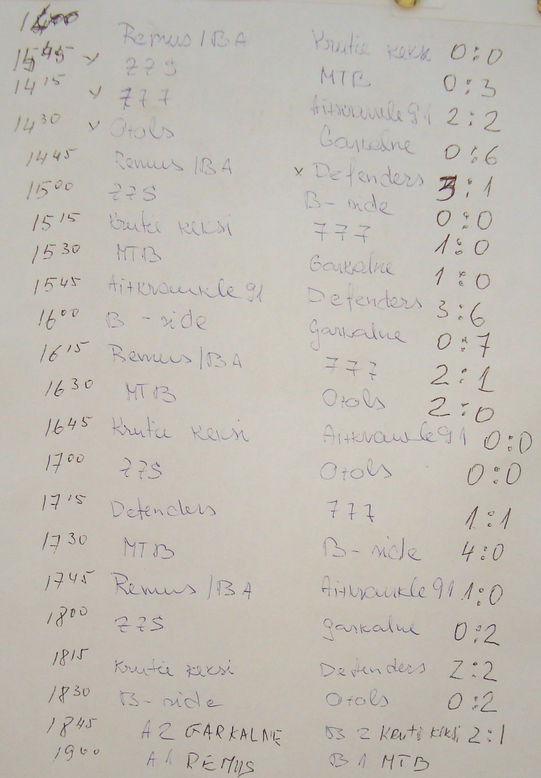 1400 Remus/BA Krutie keksi 0:0
15 45 x 77S MTB 0:3
14 15 x 777 Aizkraukle 91 2:2
14 30 x Otols Garkalne 0:6
14 45 Remus/BA x Defenders 3:1
15 00 77S B-side 0:0
15 15 Krutie keksi 777 1:0
15 30 MTB Garkalne 1:0
15 45 Aizkraukle 91 Defenders 3:6
16 00 B-side Garkalne 0:7
16 15 Remus/BA 777 2:1
16 30 MTB Otols 2:0
16 45 Krutie keksi Aizkraukle 91 0:0
17 00 77S Otols 0:0
17 15 Defenders 777 1:1
17 30 MTB B-side 4:0
17 45 Remus/BA Aizkraukle 91 1:0
18 00 77S Garkalne 0:2
18 15 Krutie keksi Defenders 2:2
18 30 B-side Otols 0:2
18 45 A2 GARKALNE B2 Kruti keksi 2:1
19 00 A1 REMUS B1 MTB